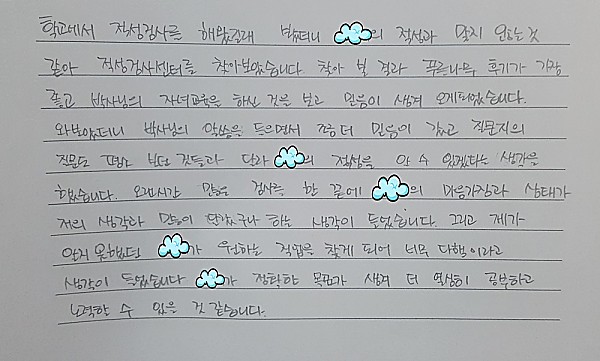 학교에서 적성검사를 해왔길래 봤더니 의 적성과 맞지 않는 것
같아 적성검사센터를 찾아보았습니다 찾아 본 결과 푸른나무 후기가 가장
좋고 박사님의 자녀교육을 하신 것을 보고 믿음이 생겨 오게되었습니다.
와보았더니 박사님의 말씀을 들으면서 좀 더 믿음이 갔고 질문지의
질문도 보던 것들과 달라 의 적성을 알 수 있겠다는 생각을
했습니다. 오랜시간 많은 검사를 한 끝에 의 마음가짐과 상태가
저의 생각과 많이 달랐구나 하는 생각이 들었습니다. 그리고 제가
알지 못했던 가 원하는 직업을 찾게 되어 너무 다행이라고
생각이 들었습니다 가 정확한 목표가 생겨 더 열심히 공부하고
노력할 수 있을 것 같습니다.